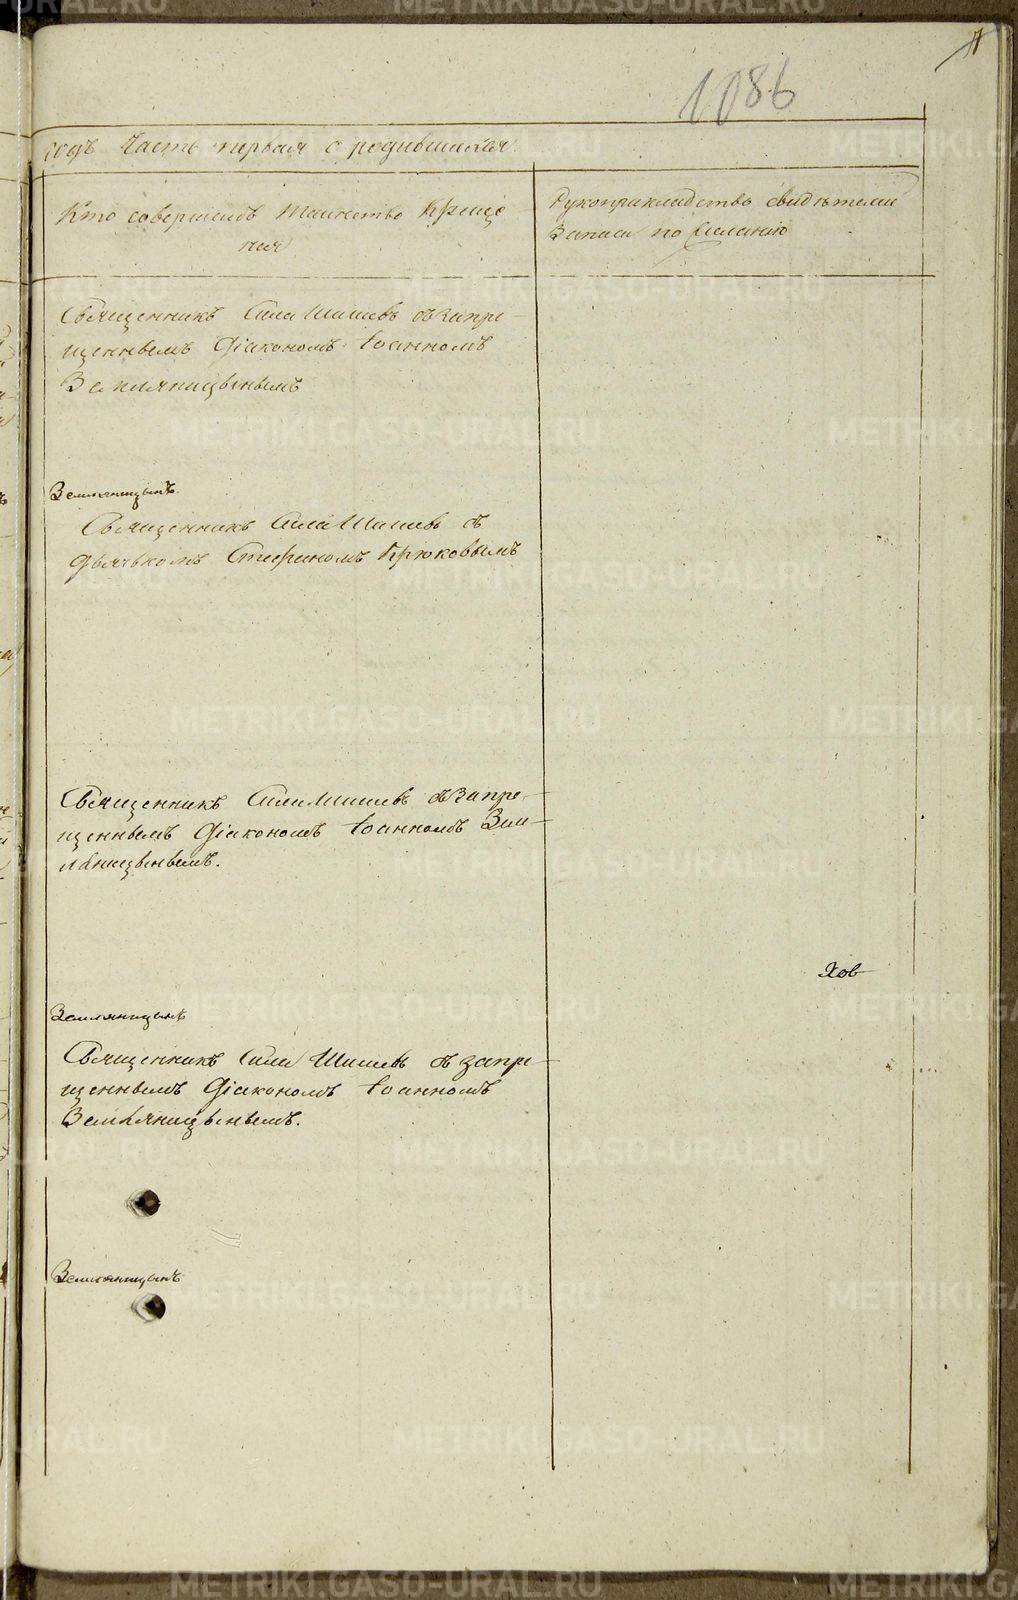 1086
годъ Часть первая о родившихся.
Кто совершилъ таинство креще
ния
Рукоприкладство свидѣтелей
записи по желанію
Священникъ Сила Шишевъ съ запре-
щеннымъ Діакономъ Іоанномъ
Земляницынымъ
Земляницынъ
Священникъ Сила Шишевъ съ
дьячькомъ Стефаномъ Крюковымъ
Священникъ Сила Шишевъ съ запре-
щеннымъ Діакономъ Іоанномъ Зем-
ляницынымъ.
Хов
Земляницынъ
Священникъ Сила Шишевъ съ запре-
щеннымъ Діакономъ Іоанномъ
Земляницынымъ.
Земляницынъ
METRIKI.GASO-URAL.RU